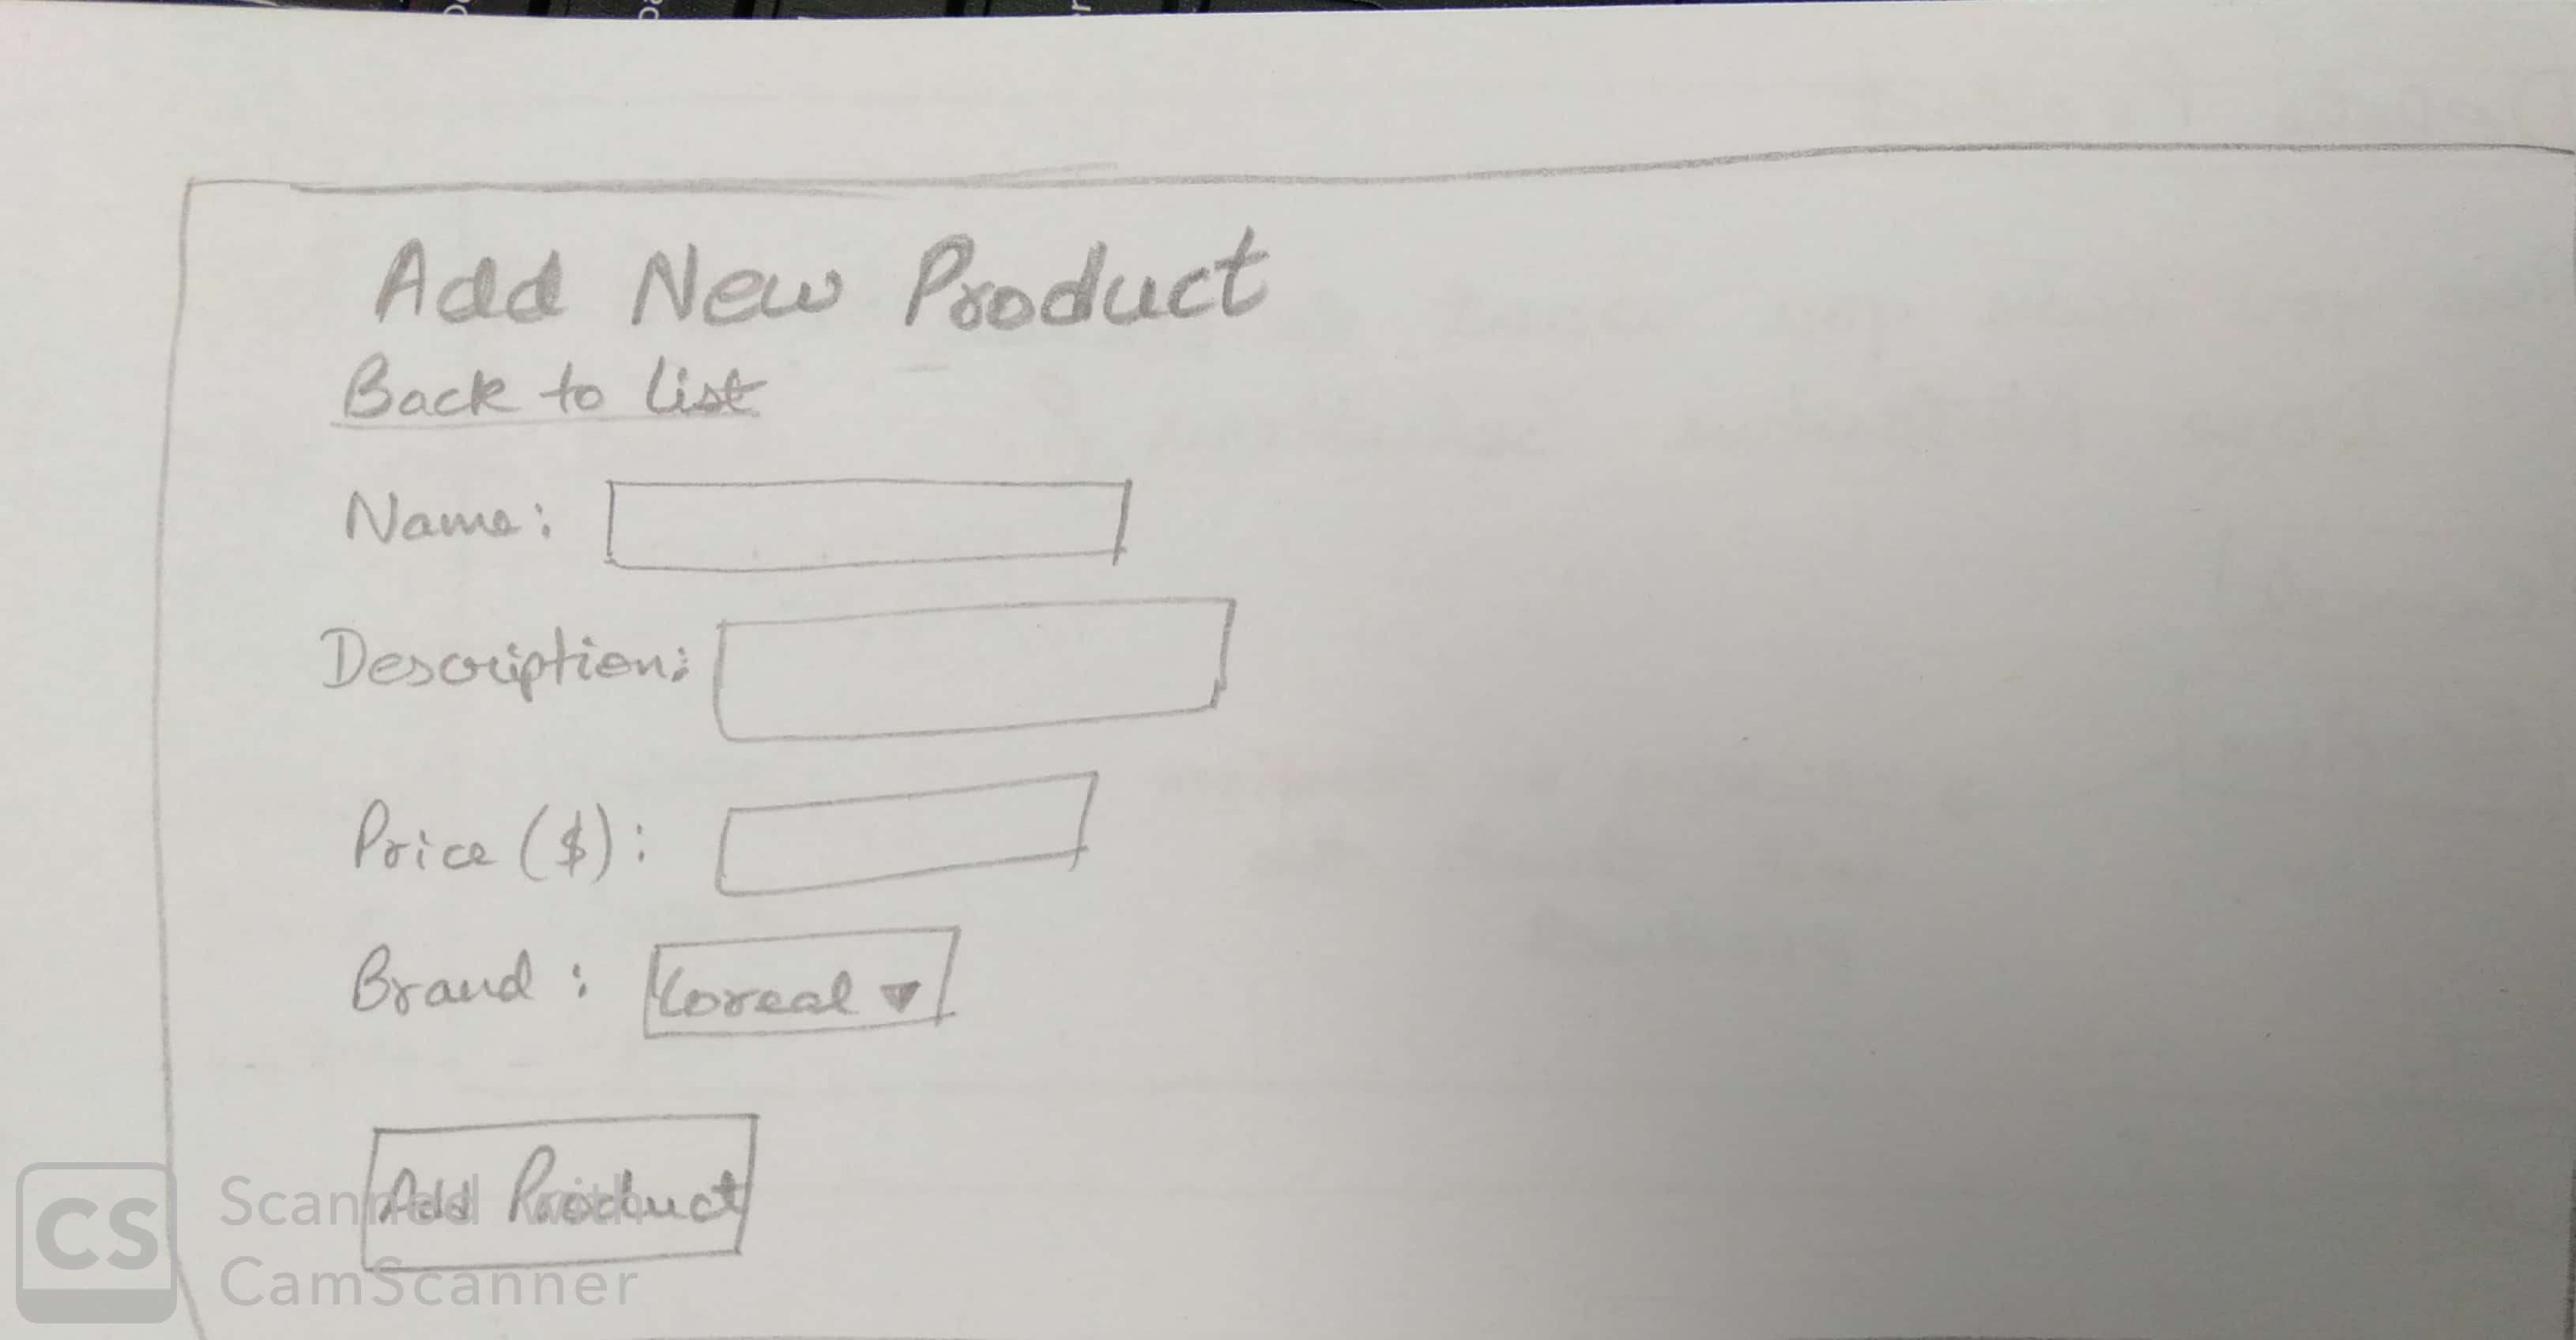 Add New Product
Back to list
Name:
Description:
Price ($):
Brand: Loreal ▼
Add Product
CS
Scanned with
CamScanner